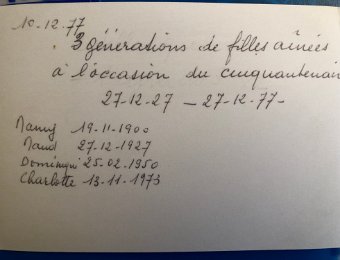 10-12-77
3 générations de filles aînées
à l'occasion du cinquantenai
27-12-27 — 27-12-77-
Nanny 19-11-1900
Maud 27-12-1927
Dominique 25-02-1950
Charlotte 13-11-1973